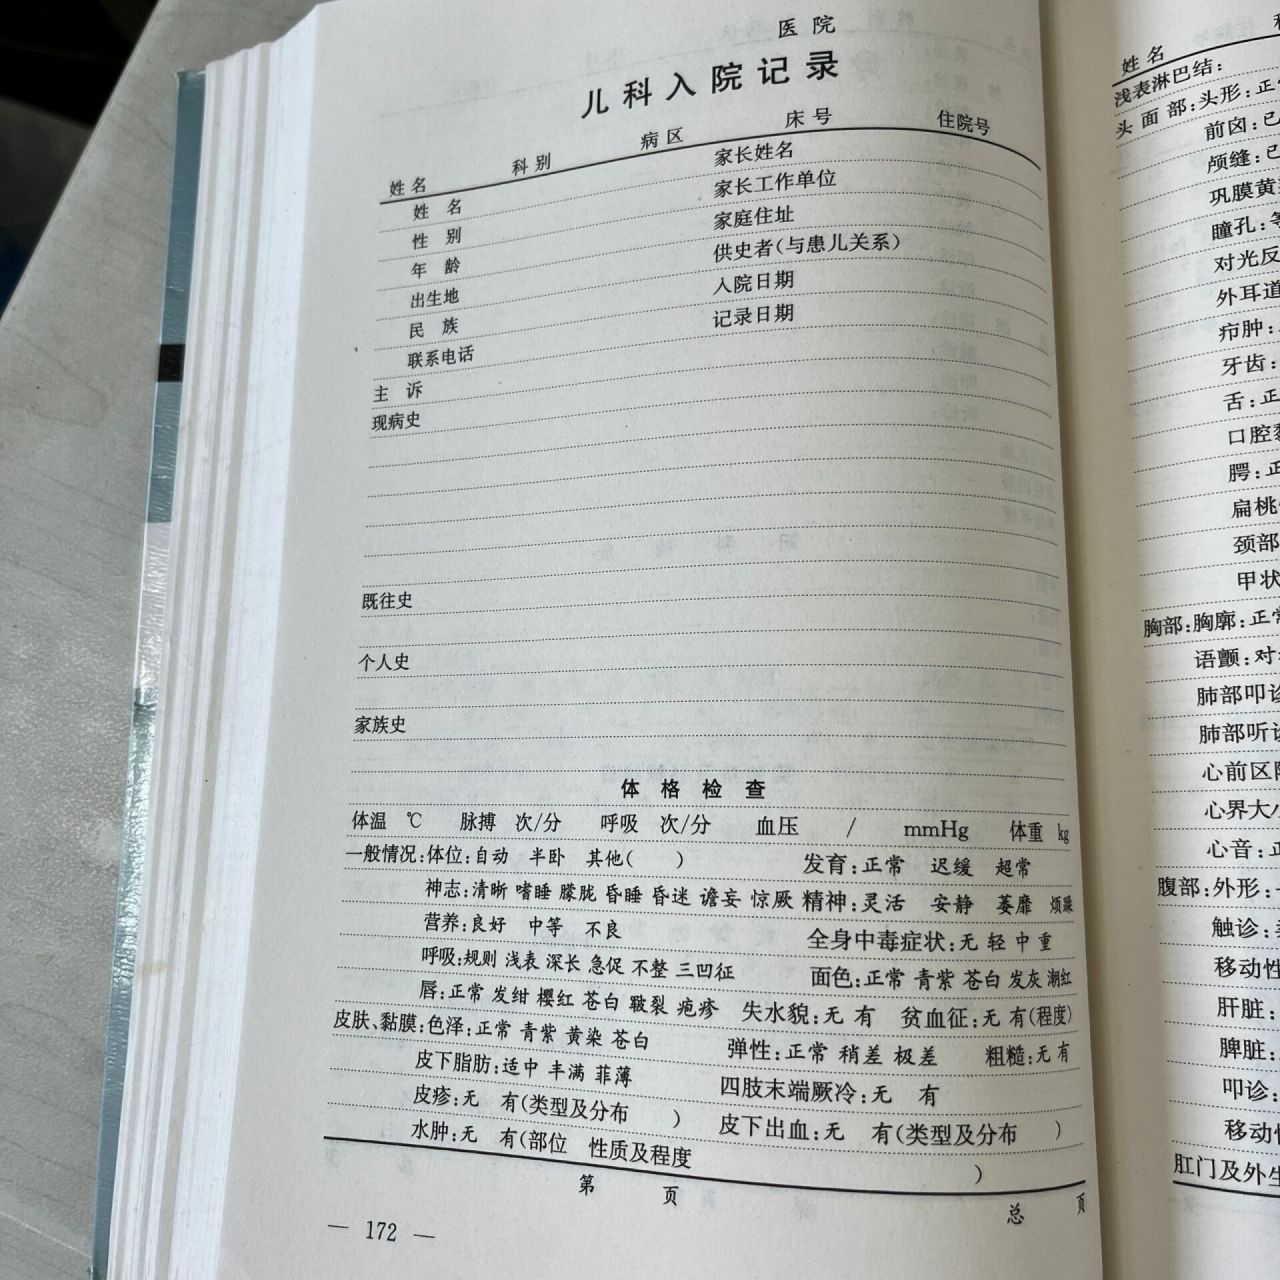 医院
儿科入院记录
姓名 科别 病区 床号 住院号
姓 名 家长姓名
性 别 家长工作单位
年 龄 家庭住址
出生地 供史者(与患儿关系)
民 族 入院日期
联系电话 记录日期
主 诉
现病史
既往史
个人史
家族史
体格检查
体温 ℃ 脉搏 次/分 呼吸 次/分 血压 / mmHg 体重 kg
一般情况:体位:自动 半卧 其他( ) 发育:正常 迟缓 超常
神志:清晰 嗜睡 朦胧 昏睡 昏迷 谵妄 惊厥 精神:灵活 安静 萎靡 烦躁
营养:良好 中等 不良 全身中毒症状:无 轻 中 重
呼吸:规则 浅表 深长 急促 不整 三凹征 面色:正常 青紫 苍白 发灰 潮红
唇:正常 发绀 樱红 苍白 皲裂 疱疹 失水貌:无 有 贫血征:无 有(程度)
皮肤、黏膜:色泽:正常 青紫 黄染 苍白 弹性:正常 稍差 极差 粗糙:无 有
皮下脂肪:适中 丰满 菲薄 四肢末端厥冷:无 有
皮疹:无 有(类型及分布 ) 皮下出血:无 有(类型及分布 )
水肿:无 有(部位 性质及程度 )
第 页 总 页
— 172 —
姓名
浅表淋巴结:
头面部:头形:正
前囟:已
颅缝:已
巩膜黄
瞳孔:
对光反
外耳道
疖肿:
牙齿:
舌:正
口腔
腭:正
扁桃
颈部
甲状
胸部:胸廓:正
语颤:对
肺部叩
肺部听
心前区
心界大
心音:
腹部:外形:
触诊:
移动
肝脏:
脾脏:
叩诊:
移动
肛门及外